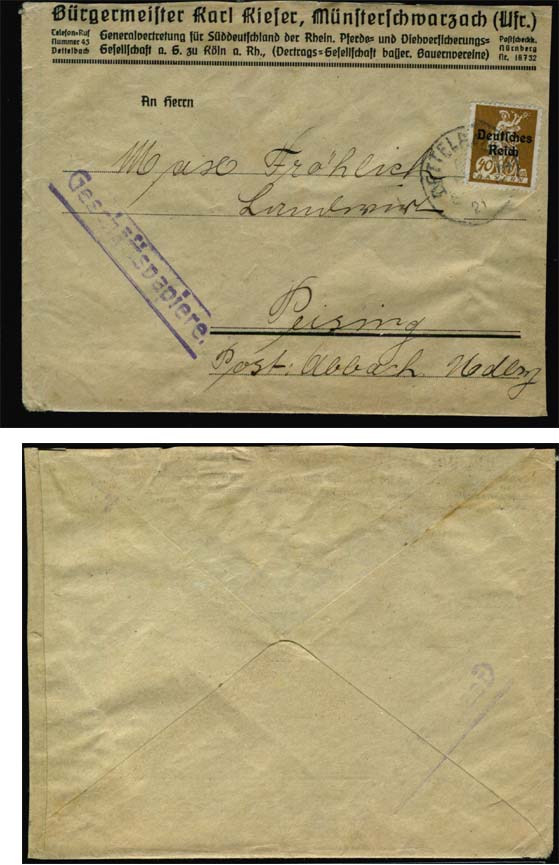 Bürgermeister Karl Kieser, Münsterschwarzach (Ufr.)
Telefon-Ruf
Nummer 45
Dettelbach
Generalvertretung für Süddeutschland der Rhein. Pferde- und Viehversicherungs-
Gesellschaft a. G. zu Köln a. Rh., (Vertrags-Gesellschaft bayer. Bauernvereine)
Postscheckk.
Nürnberg
Nr. 18732
An Herrn
Deutsches
Reich
90
DETTELBACH
21
Max Fröhlich
Landwirt
Geschäftspapiere.
Peising
Post: Abbach